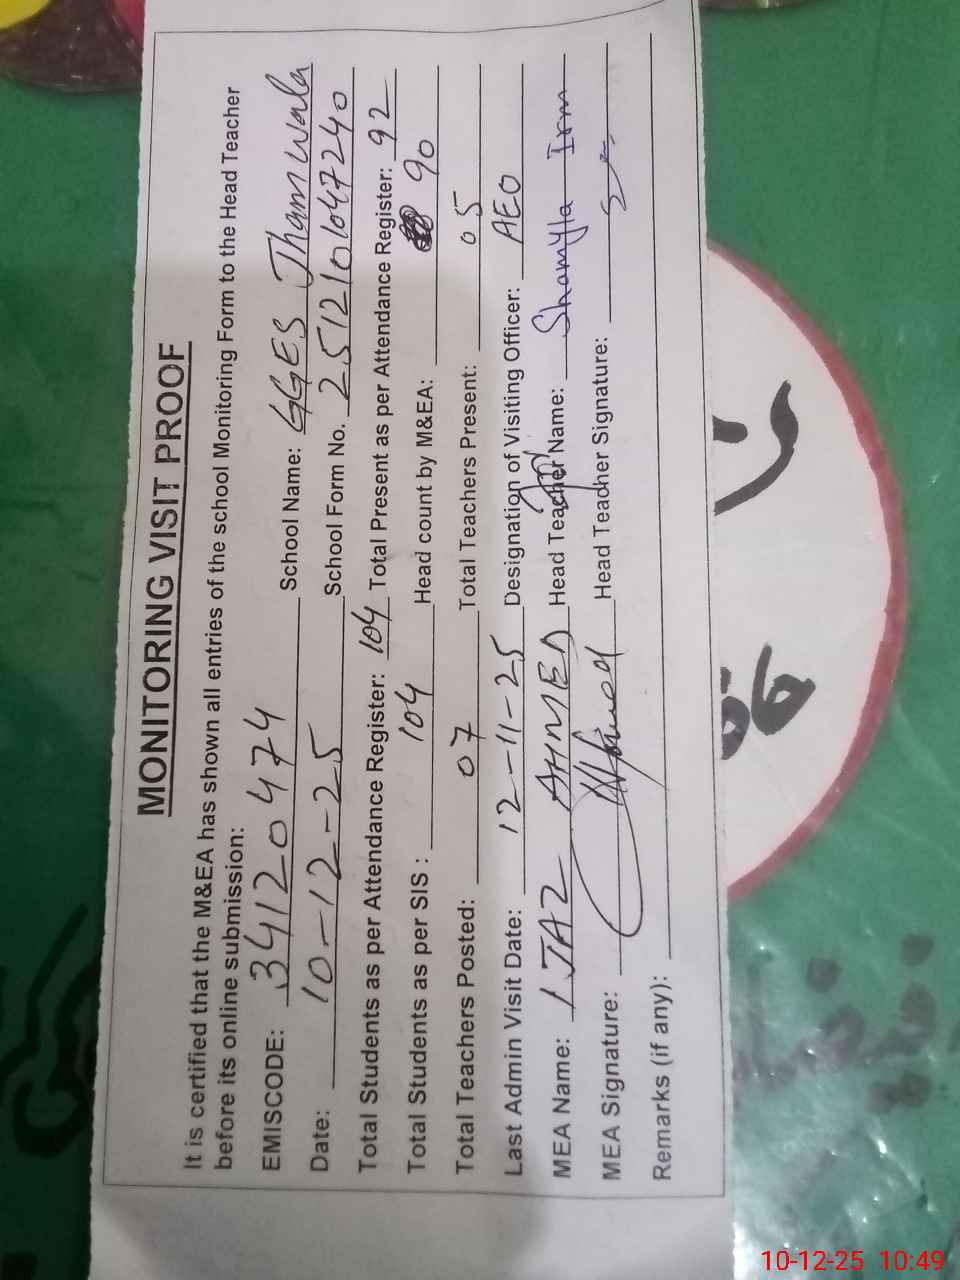 MONITORING VISIT PROOF
It is certified that the M&EA has shown all entries of the school Monitoring Form to the Head Teacher
before its online submission:
EMISCODE: 34120474 School Name: GGES Jhamwala
Date: 10-12-25 School Form No. 2512101047240
Total Students as per Attendance Register: 104 Total Present as per Attendance Register: 92
Total Students as per SIS : 104 Head count by M&EA: 90
Total Teachers Posted: 07 Total Teachers Present: 05
Last Admin Visit Date: 12-11-25 Designation of Visiting Officer: AEO
MEA Name: IJAZ AHMED Head Teacher Name: Shamyla Irm
MEA Signature: Head Teacher Signature:
Remarks (if any):
10-12-25 10:49